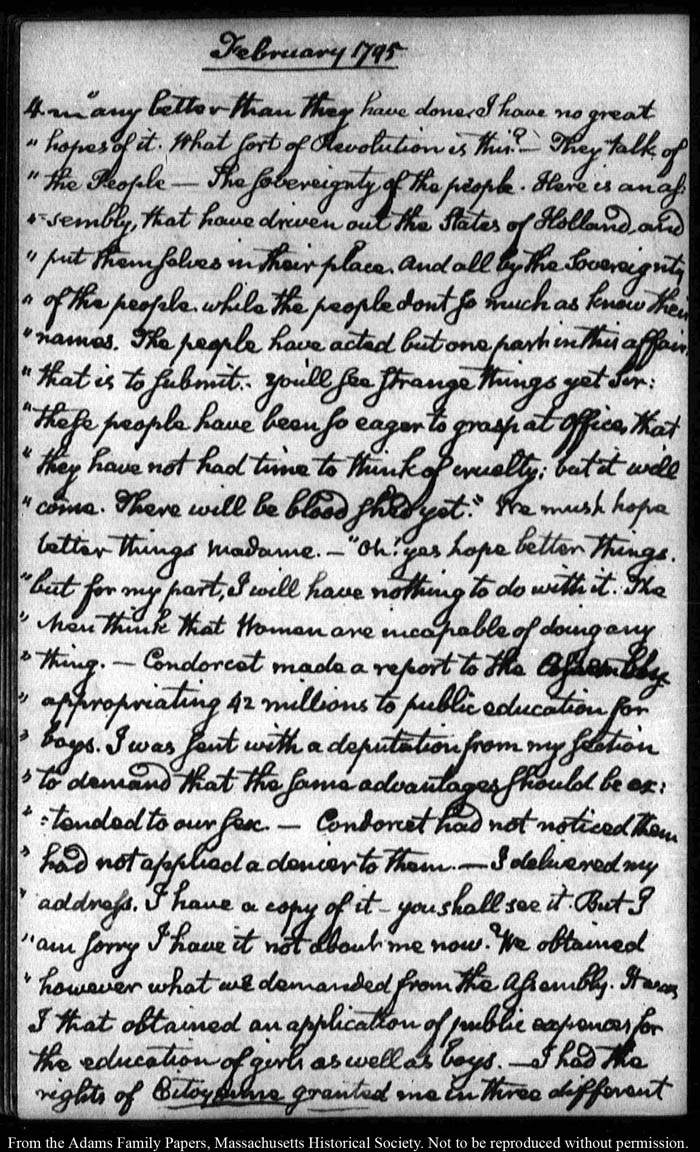 February 1795
4 m "any better than they have done. I have no great
" hopes of it. What sort of Revolution is this? — They talk of
" the People — The Sovereignty of the people. Here is an as:
"=sembly, that have driven out the States of Holland, and
" put themselves in their place. And all by the Sovereignty
" of the people. while the people dont so much as know their
" names. The people have acted but one part in this affair
" that is to submit. You'll see strange things yet Sir:
" these people have been so eager to grasp at Office, that
" they have not had time to think of cruelty; but it will
" come. There will be blood shed yet." We must hope
better things Madame. — "Oh! yes hope better things.
" but for my part, I will have nothing to do with it. The
" Men think that Women are incapable of doing any
" thing. — Condorcet made a report to the Assembly
" appropriating 42 millions to public education for
" boys. I was sent with a deputation from my section
" to demand that the same advantages should be ex:
" :tended to our sex. — Condorcet had not noticed them
" had not applied a denier to them. — I delivered my
" address. I have a copy of it — you shall see it. But I
" am sorry I have it not about me now. We obtained
" however what we demanded from the Assembly. It was
I that obtained an application of public expences for
the education of girls as well as boys. — I had the
rights of Citoyenne granted me in three different
From the Adams Family Papers, Massachusetts Historical Society. Not to be reproduced without permission.